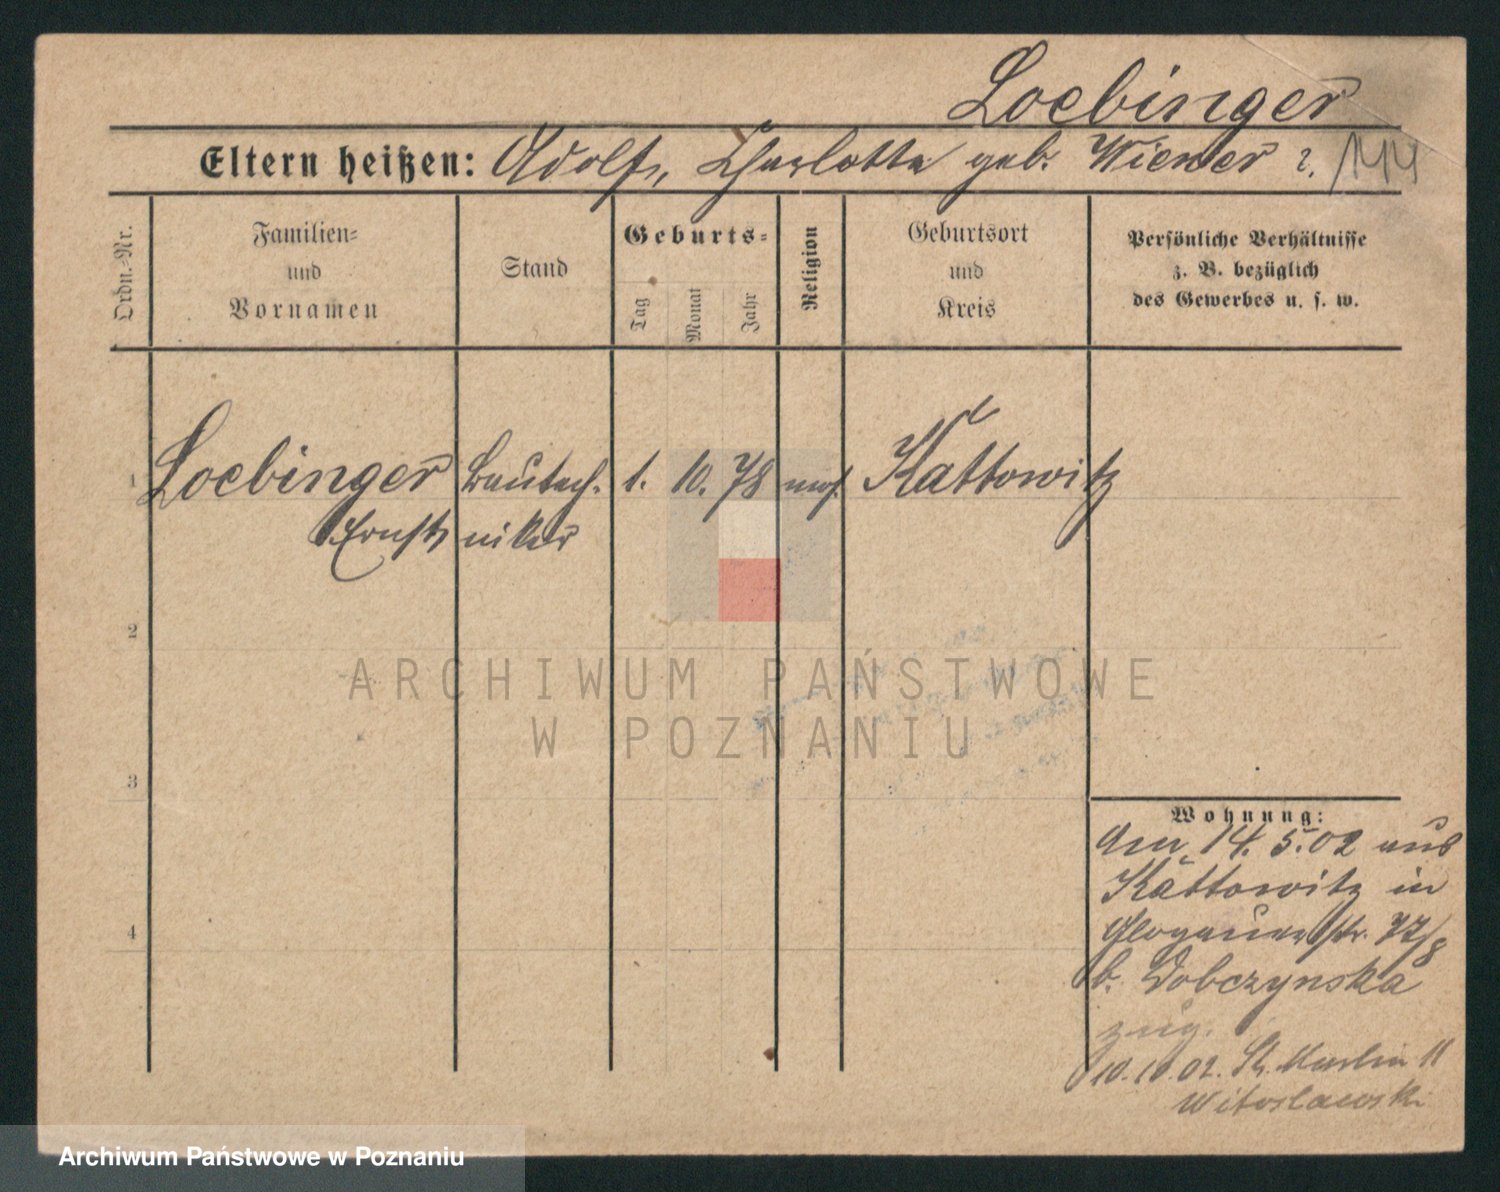 Loebinger
Eltern heißen: Adolf, Charlotte geb. Wiener
Ordn.-Nr.
Familien-
und
Vornamen
Stand
Geburts-
Tag
Monat
Jahr
Religion
Geburtsort
und
Kreis
Persönliche Verhältnisse
z. B. bezüglich
des Gewerbes u. s. w.
1 Loebinger Bautech- 1. 10. 78 mos. Kattowitz
Ernst niker
2
ARCHIWUM PAŃSTWOWE
W POZNANIU
3
Wohnung:
Am 14. 5. 02 aus
Kattowitz in
Glogauerstr. 77/8
b. Dobczynska
zug.
10. 10. 02. St. Martin 11
Witoslawski
4
Archiwum Państwowe w Poznaniu